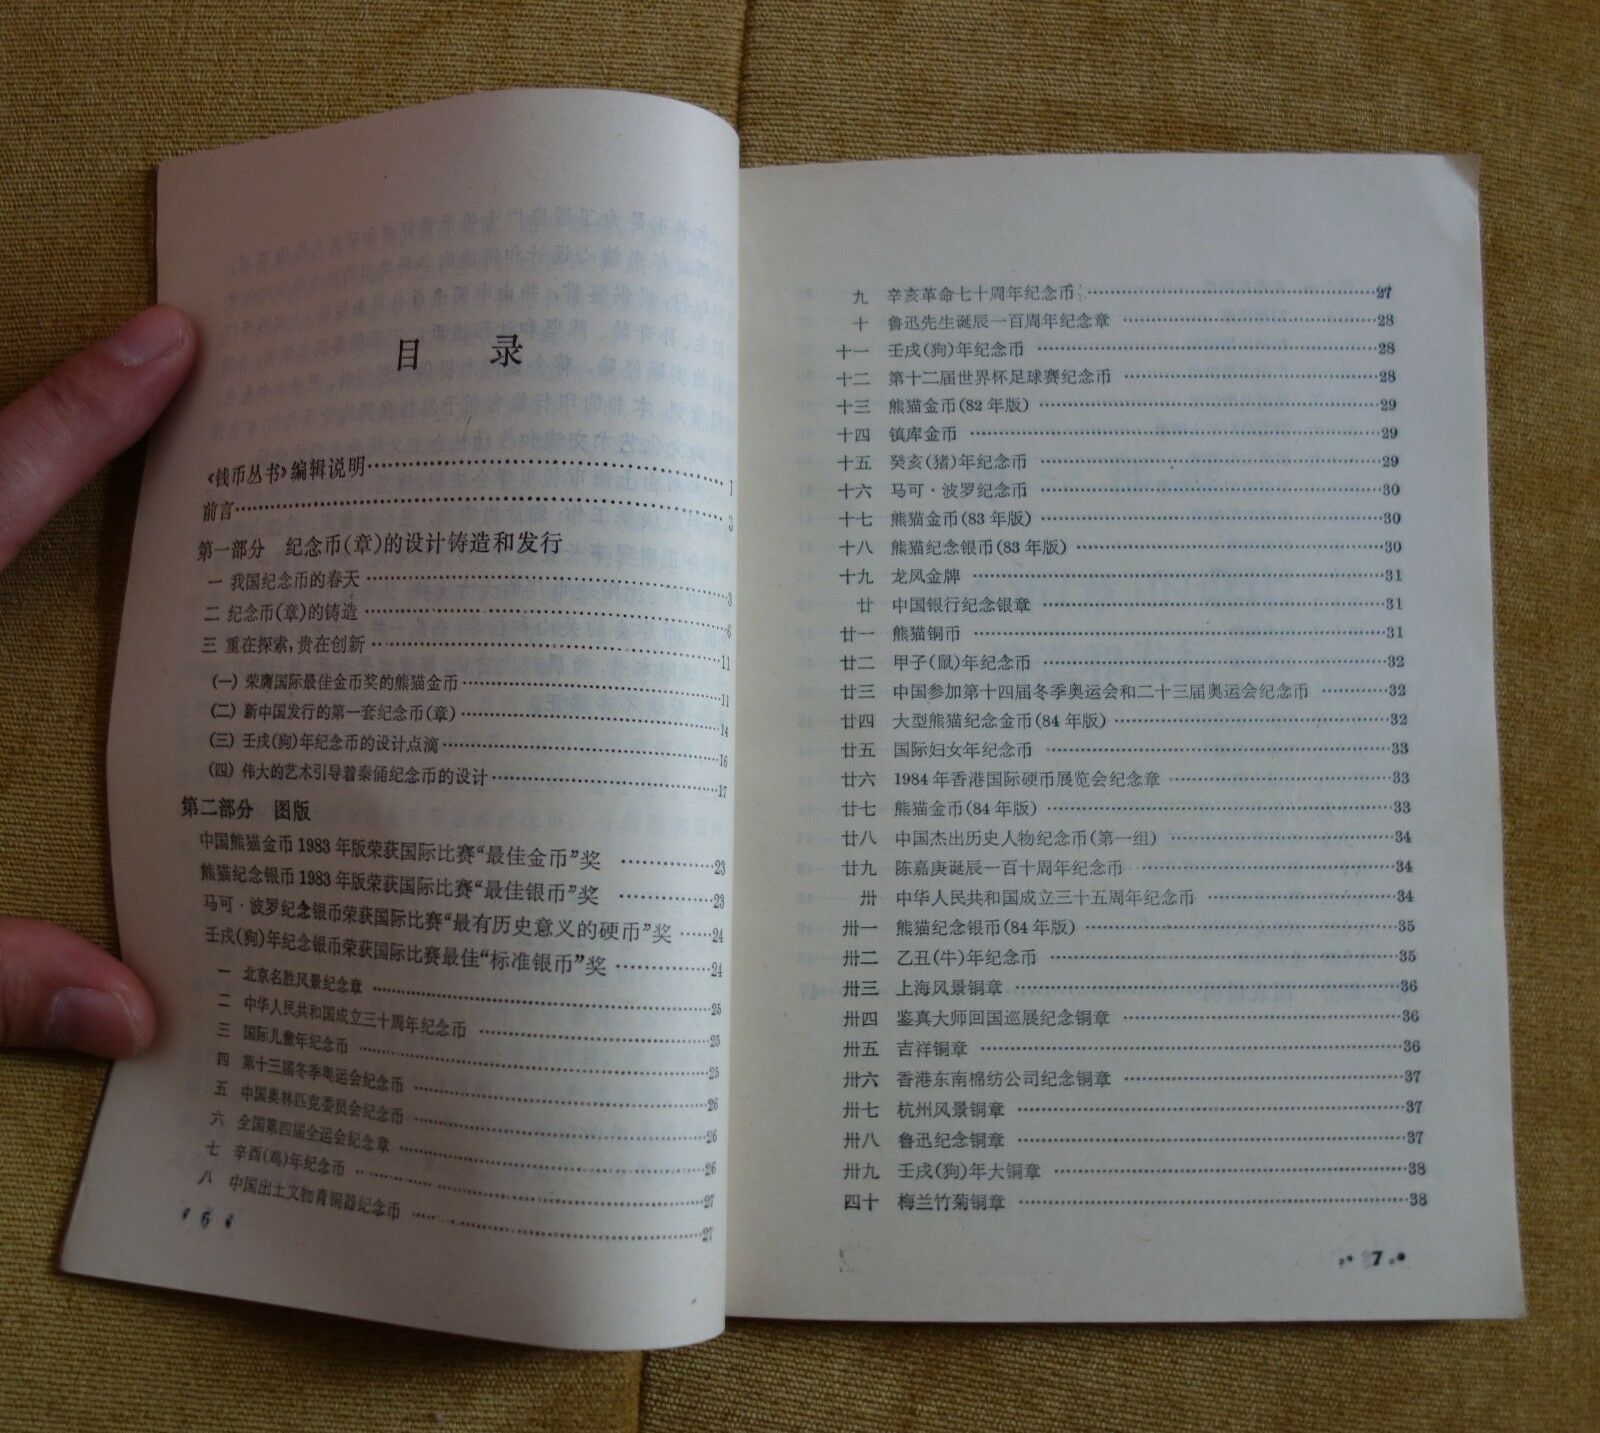 目 录
《钱币丛书》编辑说明……1
前言……3
第一部分 纪念币(章)的设计铸造和发行
一 我国纪念币的春天……3
二 纪念币(章)的铸造……6
三 重在探索,贵在创新……11
(一) 荣膺国际最佳金币奖的熊猫金币……11
(二) 新中国发行的第一套纪念币(章)……14
(三) 壬戌(狗)年纪念币的设计点滴……16
(四) 伟大的艺术引导着秦俑纪念币的设计……17
第二部分 图版
中国熊猫金币1983年版荣获国际比赛“最佳金币”奖……23
熊猫纪念银币1983年版荣获国际比赛“最佳银币”奖……23
马可·波罗纪念银币荣获国际比赛“最有历史意义的硬币”奖……24
壬戌(狗)年纪念银币荣获国际比赛最佳“标准银币”奖……24
一 北京名胜风景纪念章……25
二 中华人民共和国成立三十周年纪念币……25
三 国际儿童年纪念币……25
四 第十三届冬季奥运会纪念币……26
五 中国奥林匹克委员会纪念币……26
六 全国第四届全运会纪念章……26
七 辛酉(鸡)年纪念币……27
八 中国出土文物青铜器纪念币……27
6
九 辛亥革命七十周年纪念币……27
十 鲁迅先生诞辰一百周年纪念章……28
十一 壬戌(狗)年纪念币……28
十二 第十二届世界杯足球赛纪念币……28
十三 熊猫金币(82年版)……29
十四 镇库金币……29
十五 癸亥(猪)年纪念币……29
十六 马可·波罗纪念币……30
十七 熊猫金币(83年版)……30
十八 熊猫纪念银币(83年版)……30
十九 龙凤金牌……31
廿 中国银行纪念银章……31
廿一 熊猫铜币……31
廿二 甲子(鼠)年纪念币……32
廿三 中国参加第十四届冬季奥运会和二十三届奥运会纪念币……32
廿四 大型熊猫纪念金币(84年版)……32
廿五 国际妇女年纪念币……33
廿六 1984年香港国际硬币展览会纪念章……33
廿七 熊猫金币(84年版)……33
廿八 中国杰出历史人物纪念币(第一组)……34
廿九 陈嘉庚诞辰一百十周年纪念币……34
卅 中华人民共和国成立三十五周年纪念币……34
卅一 熊猫纪念银币(84年版)……35
卅二 乙丑(牛)年纪念币……35
卅三 上海风景铜章……36
卅四 鉴真大师回国巡展纪念铜章……36
卅五 吉祥铜章……36
卅六 香港东南棉纺公司纪念铜章……37
卅七 杭州风景铜章……37
卅八 鲁迅纪念铜章……37
卅九 壬戌(狗)年大铜章……38
四十 梅兰竹菊铜章……38
7